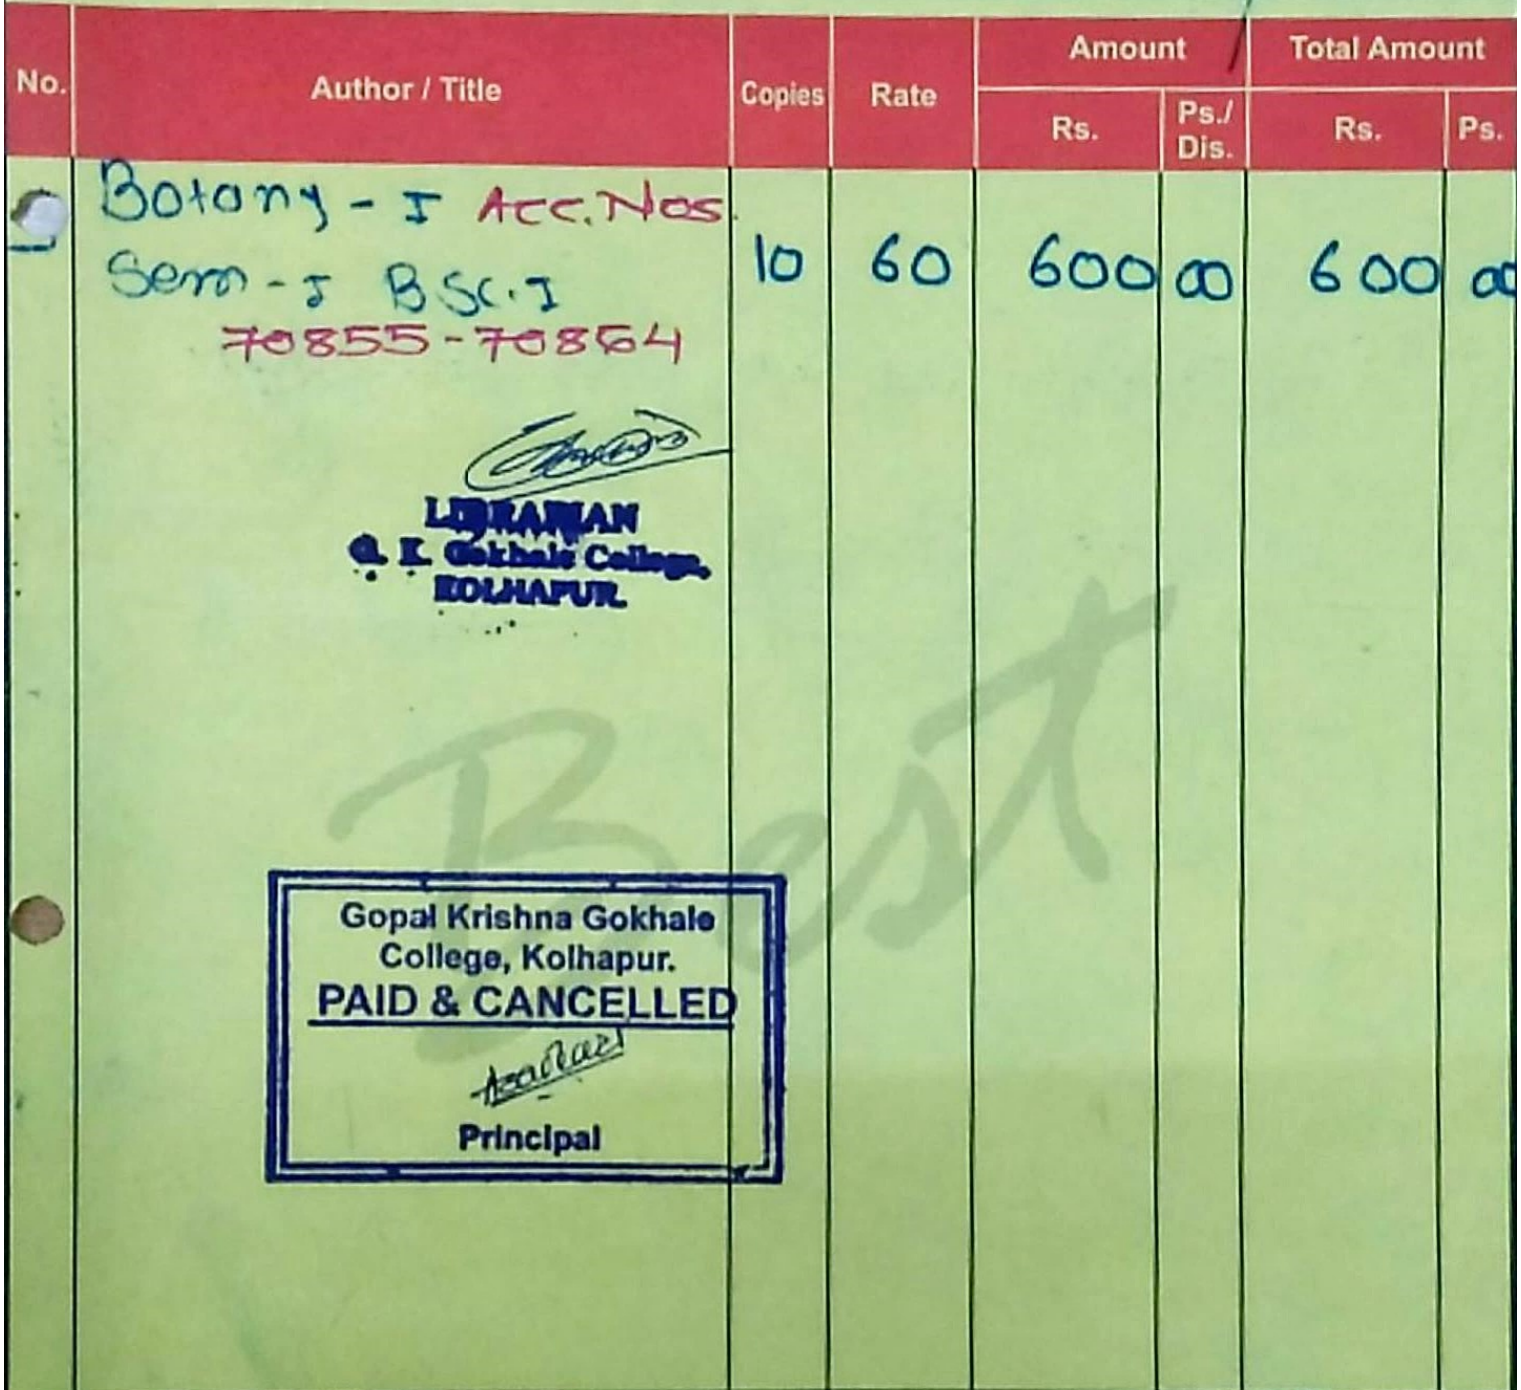 No. Author / Title Copies Rate Amount Total Amount
Rs. Ps./ Dis. Rs. Ps.
Botany - I Acc. Nos.
Sem - I BSc. I 10 60 600 00 600 00
70855-70864
LIBRARIAN
G. K. Gokhale College,
KOLHAPUR.
Best
Gopal Krishna Gokhale
College, Kolhapur.
PAID & CANCELLED
Principal